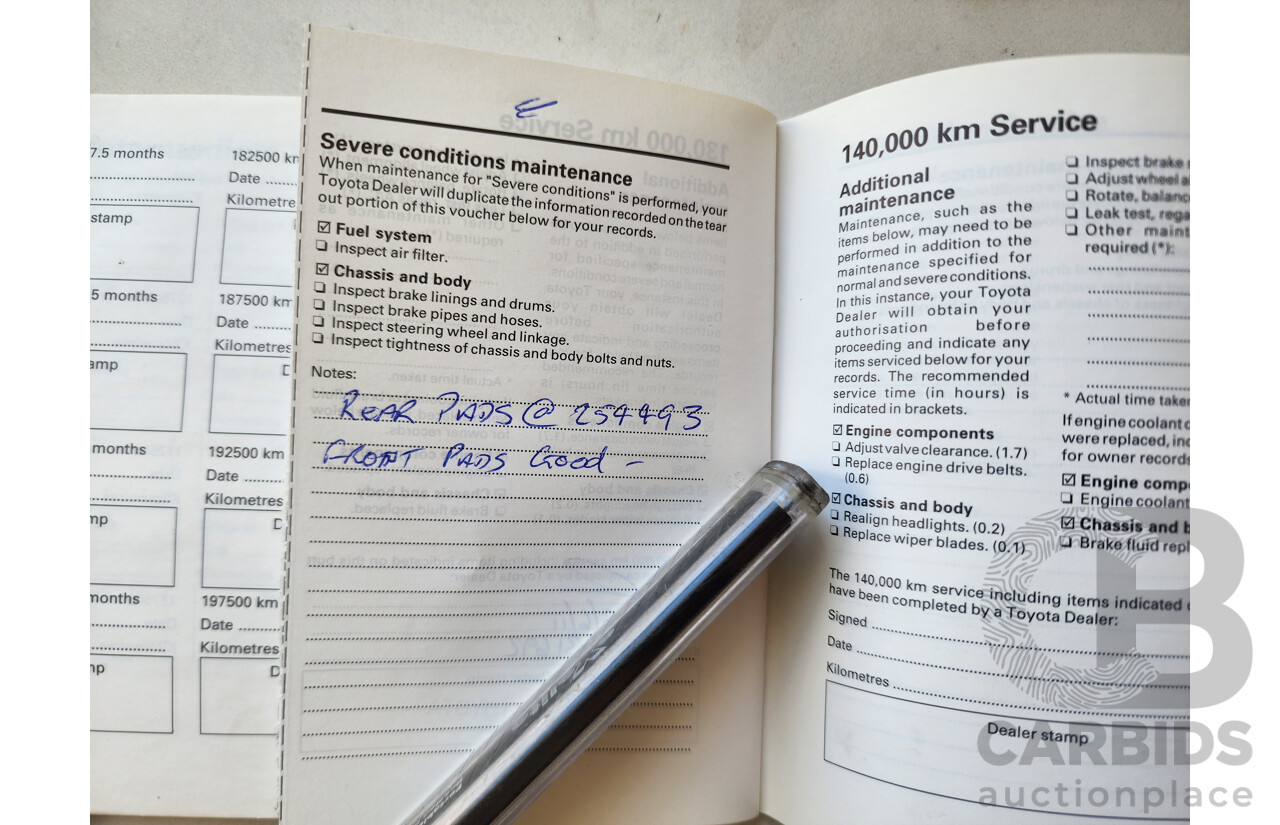 7.5 months
stamp
5 months
amp
months
mp
months
mp
182500 km
Date
Kilometre
187500 km
Date
Kilometres
D
192500 km
Date
Kilometres
D
197500 km
Date
Kilometres
D
130,000 km Service
Severe conditions maintenance
When maintenance for "Severe conditions" is performed, your
Toyota Dealer will duplicate the information recorded on the tear
out portion of this voucher below for your records.
☑ Fuel system
❏ Inspect air filter.
☑ Chassis and body
❏ Inspect brake linings and drums.
❏ Inspect brake pipes and hoses.
❏ Inspect steering wheel and linkage.
❏ Inspect tightness of chassis and body bolts and nuts.
Notes:
REAR PADS @ 254493
FRONT PADS GOOD -
140,000 km Service
Additional
maintenance
Maintenance, such as the
items below, may need to be
performed in addition to the
maintenance specified for
normal and severe conditions.
In this instance, your Toyota
Dealer will obtain your
authorisation before
proceeding and indicate any
items serviced below for your
records. The recommended
service time (in hours) is
indicated in brackets.
☑ Engine components
❏ Adjust valve clearance. (1.7)
❏ Replace engine drive belts.
(0.6)
☑ Chassis and body
❏ Realign headlights. (0.2)
❏ Replace wiper blades. (0.1)
❏ Inspect brake
❏ Adjust wheel a
❏ Rotate, balanc
❏ Leak test, rega
❏ Other maint
required (*):
* Actual time take
If engine coolant o
were replaced, ind
for owner records
☑ Engine comp
❏ Engine coolant
☑ Chassis and b
❏ Brake fluid repl
The 140,000 km service including items indicated
have been completed by a Toyota Dealer:
Signed
Date
Kilometres
Dealer stamp
CARBIDS
auctionplace